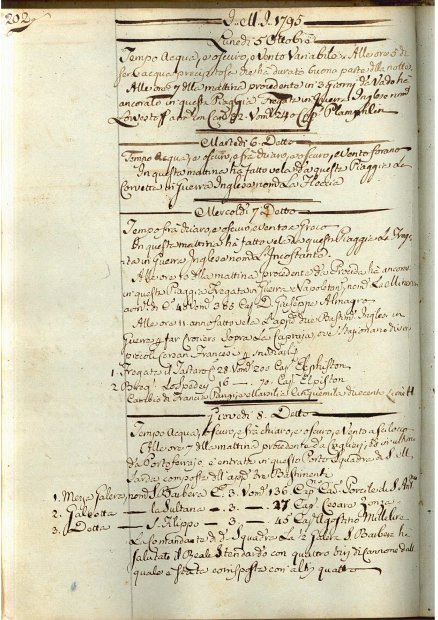 202
D. M. D. 1795
Lunedì 5 Ottobre
Tempo Acqua, e oscuro, e Vento Variabile. Alle ore 5 di
sera acqua precipitosa che ha durato buona parte della notte.
Alle ore 7 della mattina procedente in 3 giorni da Vado ha
ancorato in questa Piaggia Fregata in Guerra Inglese nom.
Lowestoff arm. con Can. 32. Vom. 240 Cap. Plamphlin
Martedì 6 Detto
Tempo Acqua, e oscuro, e frà chiaro, e oscuro, e Vento forano
In questa mattina ha fatto vela da questa Piaggia la
Corvetta di Guerra Inglese nom. La Fleccia
Mercoldì 7 Detto
Tempo frà chiaro, e oscuro, e vento e Greco
In questa mattina ha fatto vela da questa Piaggia la Fregata
in Guerra Inglese nom. L'Incostante.
Alle ore 10 della mattina procedente da Procida ha ancorato
in questa Piaggia Fregata in Guerra Napolitana nom. La Minerva
arm. di C. 48 Vom. 385 Cap. D. Giuseppe Almagro.
Alle ore 11 anno fatto vela due Bastim. Inglesi in
Guerra per far Crociera Sopra la Capraja, ove
piccoli Corsari Francesi
1 Fregata il Tartaro C. 28 Vom. 200 Cap. Elphiston
2 Brig. Lo Speedy 16 — 70. Cap. Elpiston
Giovedì 8. Detto
Tempo Acqua, oscuro, e frà chiaro, e oscuro, e Vento a Silocco
Alle ore 7 della mattina procedente da Cagliari, ed in ultimo
da Portoferrajo è entrata in questo Porto Squadra di S. M.
Sarda composta dell' app. tre Bastimenti
1. Mezza Galera, nom. S. Barbara C. 3. Vom. 136 Cap. Cav. Porcile di S. Ant.
2. Galeotta — la Sultana — 3. — 27 Cap. Cesaro
3. Detta — S. Filippo — 3 — 45 Cap. Agostino Millelire
La Comandante di d. Squadra La ½ Galera S. Barbera ha
salutato il Reale Stendardo con quattro tiri di Cannone dalle
quale è stata corrisposta con altri quattro